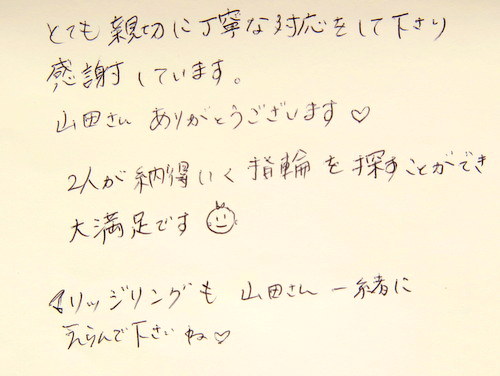 とても親切に丁寧な対応をして下さり
感謝しています。
山田さん ありがとうございます♡
2人が納得いく指輪を探すことができ
大満足です
マリッジリングも 山田さん 一緒に
えらんで下さいね♡